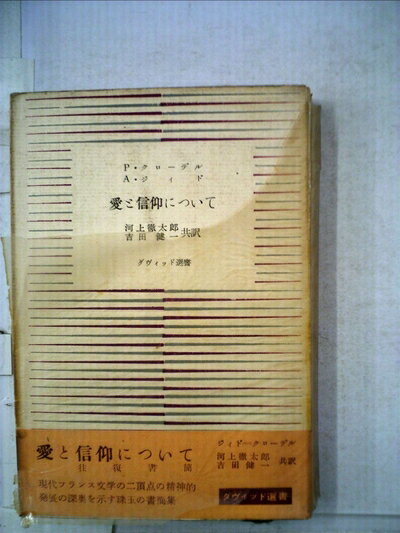 P・クローデル
A・ジイド
愛と信仰について
河上徹太郎
吉田健一 共訳
ダヴィッド選書
愛と信仰について
往復書簡
現代フランス文学の二頂点の精神的
発展の深奥を示す珠玉の書簡集
ジィド―クローデル
河上徹太郎
吉田健一 共訳
ダヴィッド選書